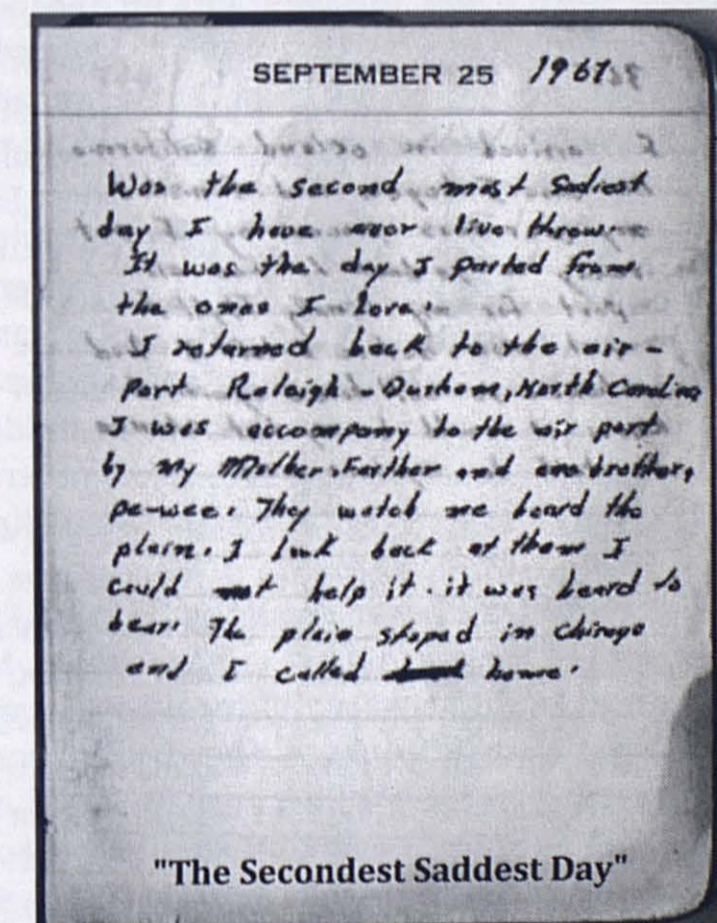 SEPTEMBER 25 1967
Was the second most sadiest
day I have ever live threw.
It was the day I parted from
the ones I love.
I returned back to the air-
port Raleigh-Durham, North Carolina
I was accompany to the air port
by my Mother, Farther and one brother,
pe-wee. They watch me board the
plain. I look back at them I
could not help it. it was heard to
bear. The plain stoped in Chicago
and I called home.
"The Secondest Saddest Day"